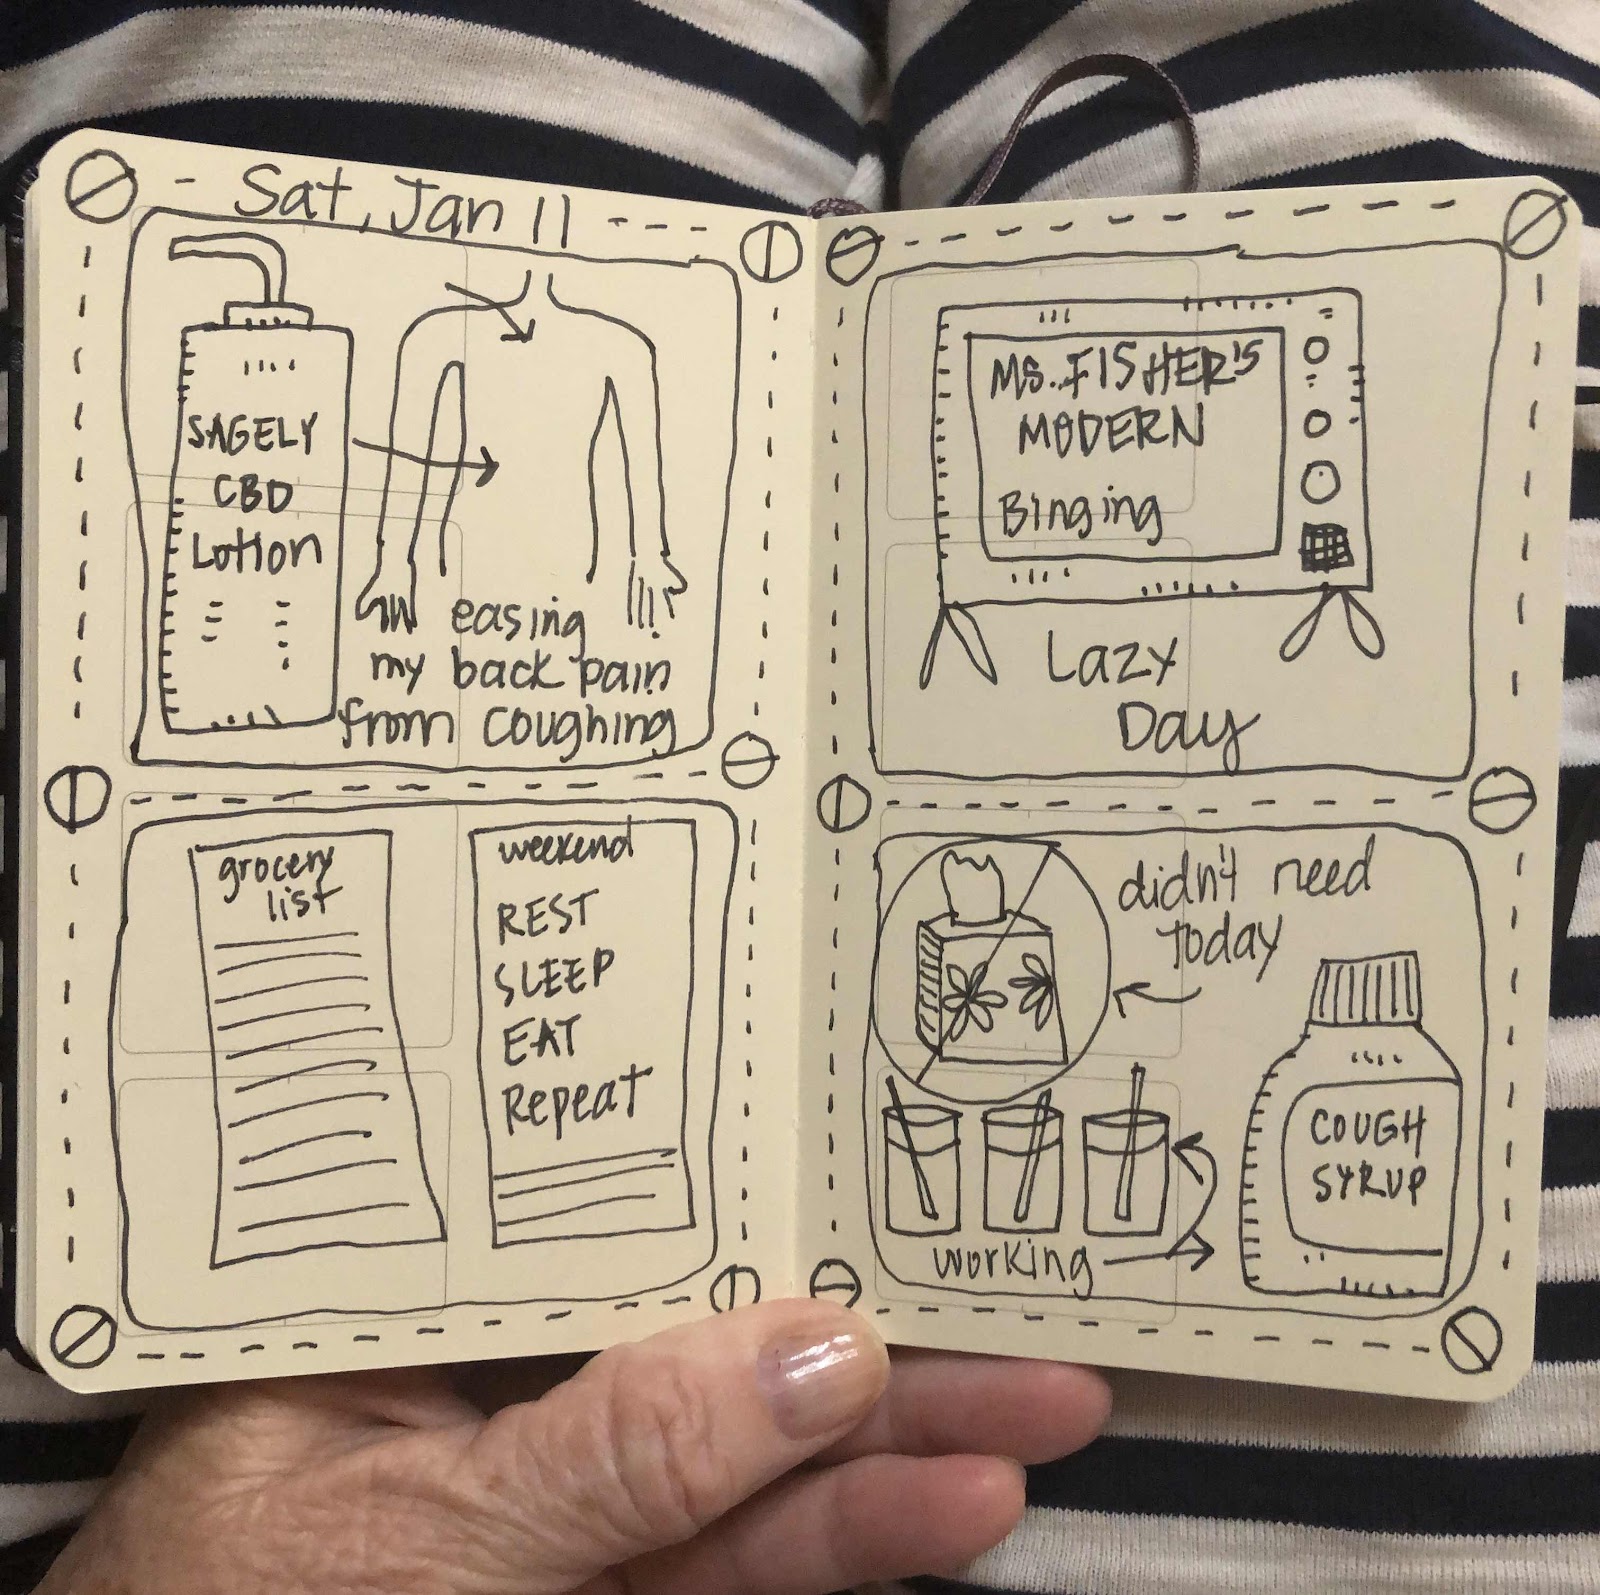 Sat, Jan 11
SAGELY
CBD
Lotion
easing
my back pain
from coughing
grocery
list
weekend
REST
SLEEP
EAT
Repeat
MS. FISHER'S
MODERN
Binging
Lazy
Day
didn't need
today
COUGH
SYRUP
working